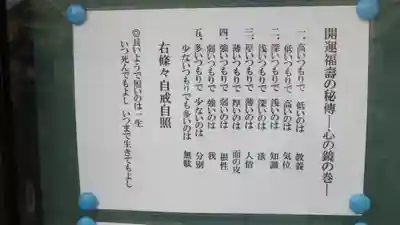 開運福壽の秘傳―心の鏡の巻―
一、高いつもりで 低いのは 教養
低いつもりで 高いのは 気位
二、深いつもりで 浅いのは 知識
浅いつもりで 深いのは 慾
三、厚いつもりで 薄いのは 人情
薄いつもりで 厚いのは 面の皮
四、強いつもりで 弱いのは 根性
弱いつもりで 強いのは 我
五、多いつもりで 少ないのは 分別
少ないつもりでも多いのは 無駄
右條々自戒自照
◎長いようで短いのは一生
いつ死んでもよし いつまで生きてもよし